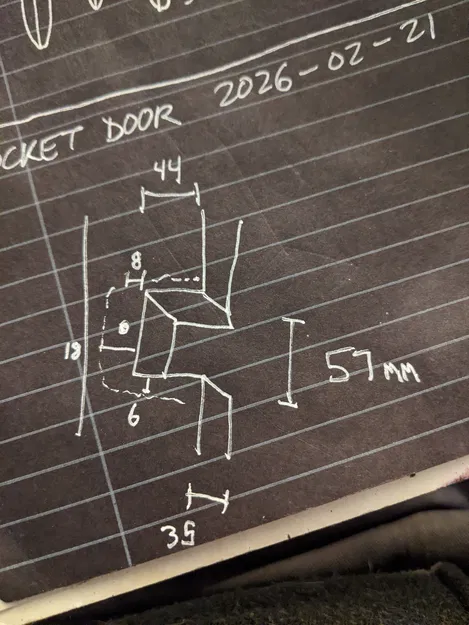 POCKET DOOR 2026-02-21
44
8
18
6
57 MM
35